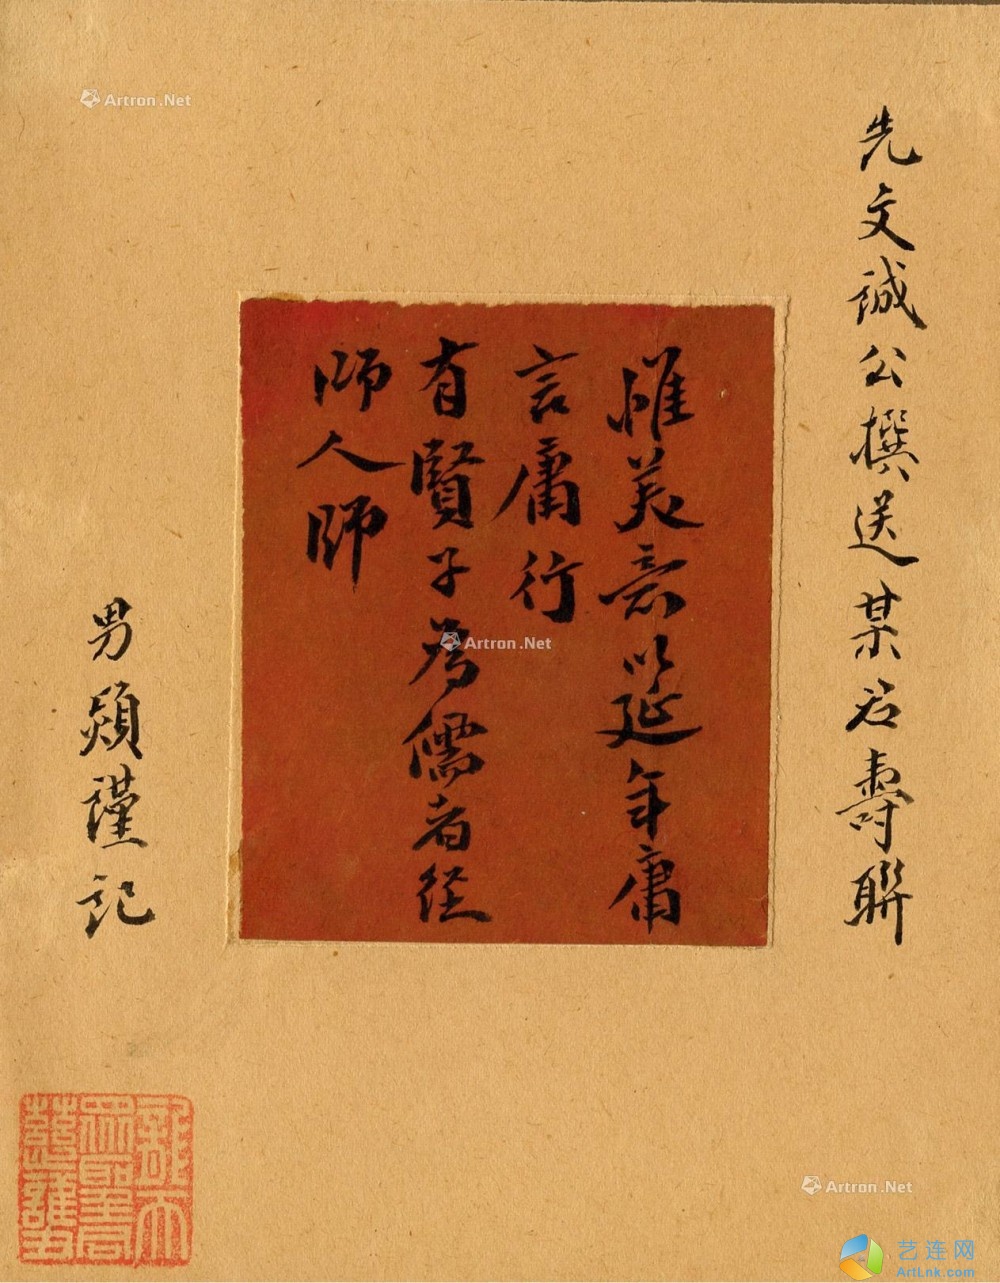 先文誠公撰送某君壽聯
惟美意以延年庸
言庸行
有賢子為儒者經
師人師
男熲謹記
Artron.Net
Artron.Net
Artron.Net
艺连网
ArtLnk.com